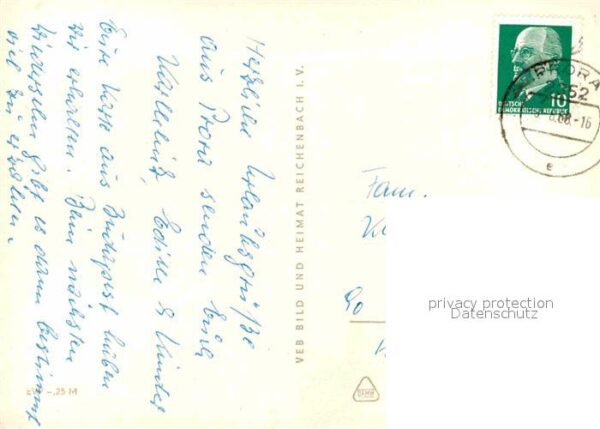 Herzliche Urlaubsgrüße
aus Prora senden Euch
Edith & Kinder
Eure Karte aus Budapest haben
wir erhalten. Beim nächsten
Wiedersehen gibt es dann bestimmt
viel zu erzählen.
VEB BILD UND HEIMAT REICHENBACH I. V.
EVP -,25 M
DEUTSCHE
DEMOKRATISCHE REPUBLIK
10
PRORA
352
.68.-16
e
Fam.
privacy protection
Datenschutz